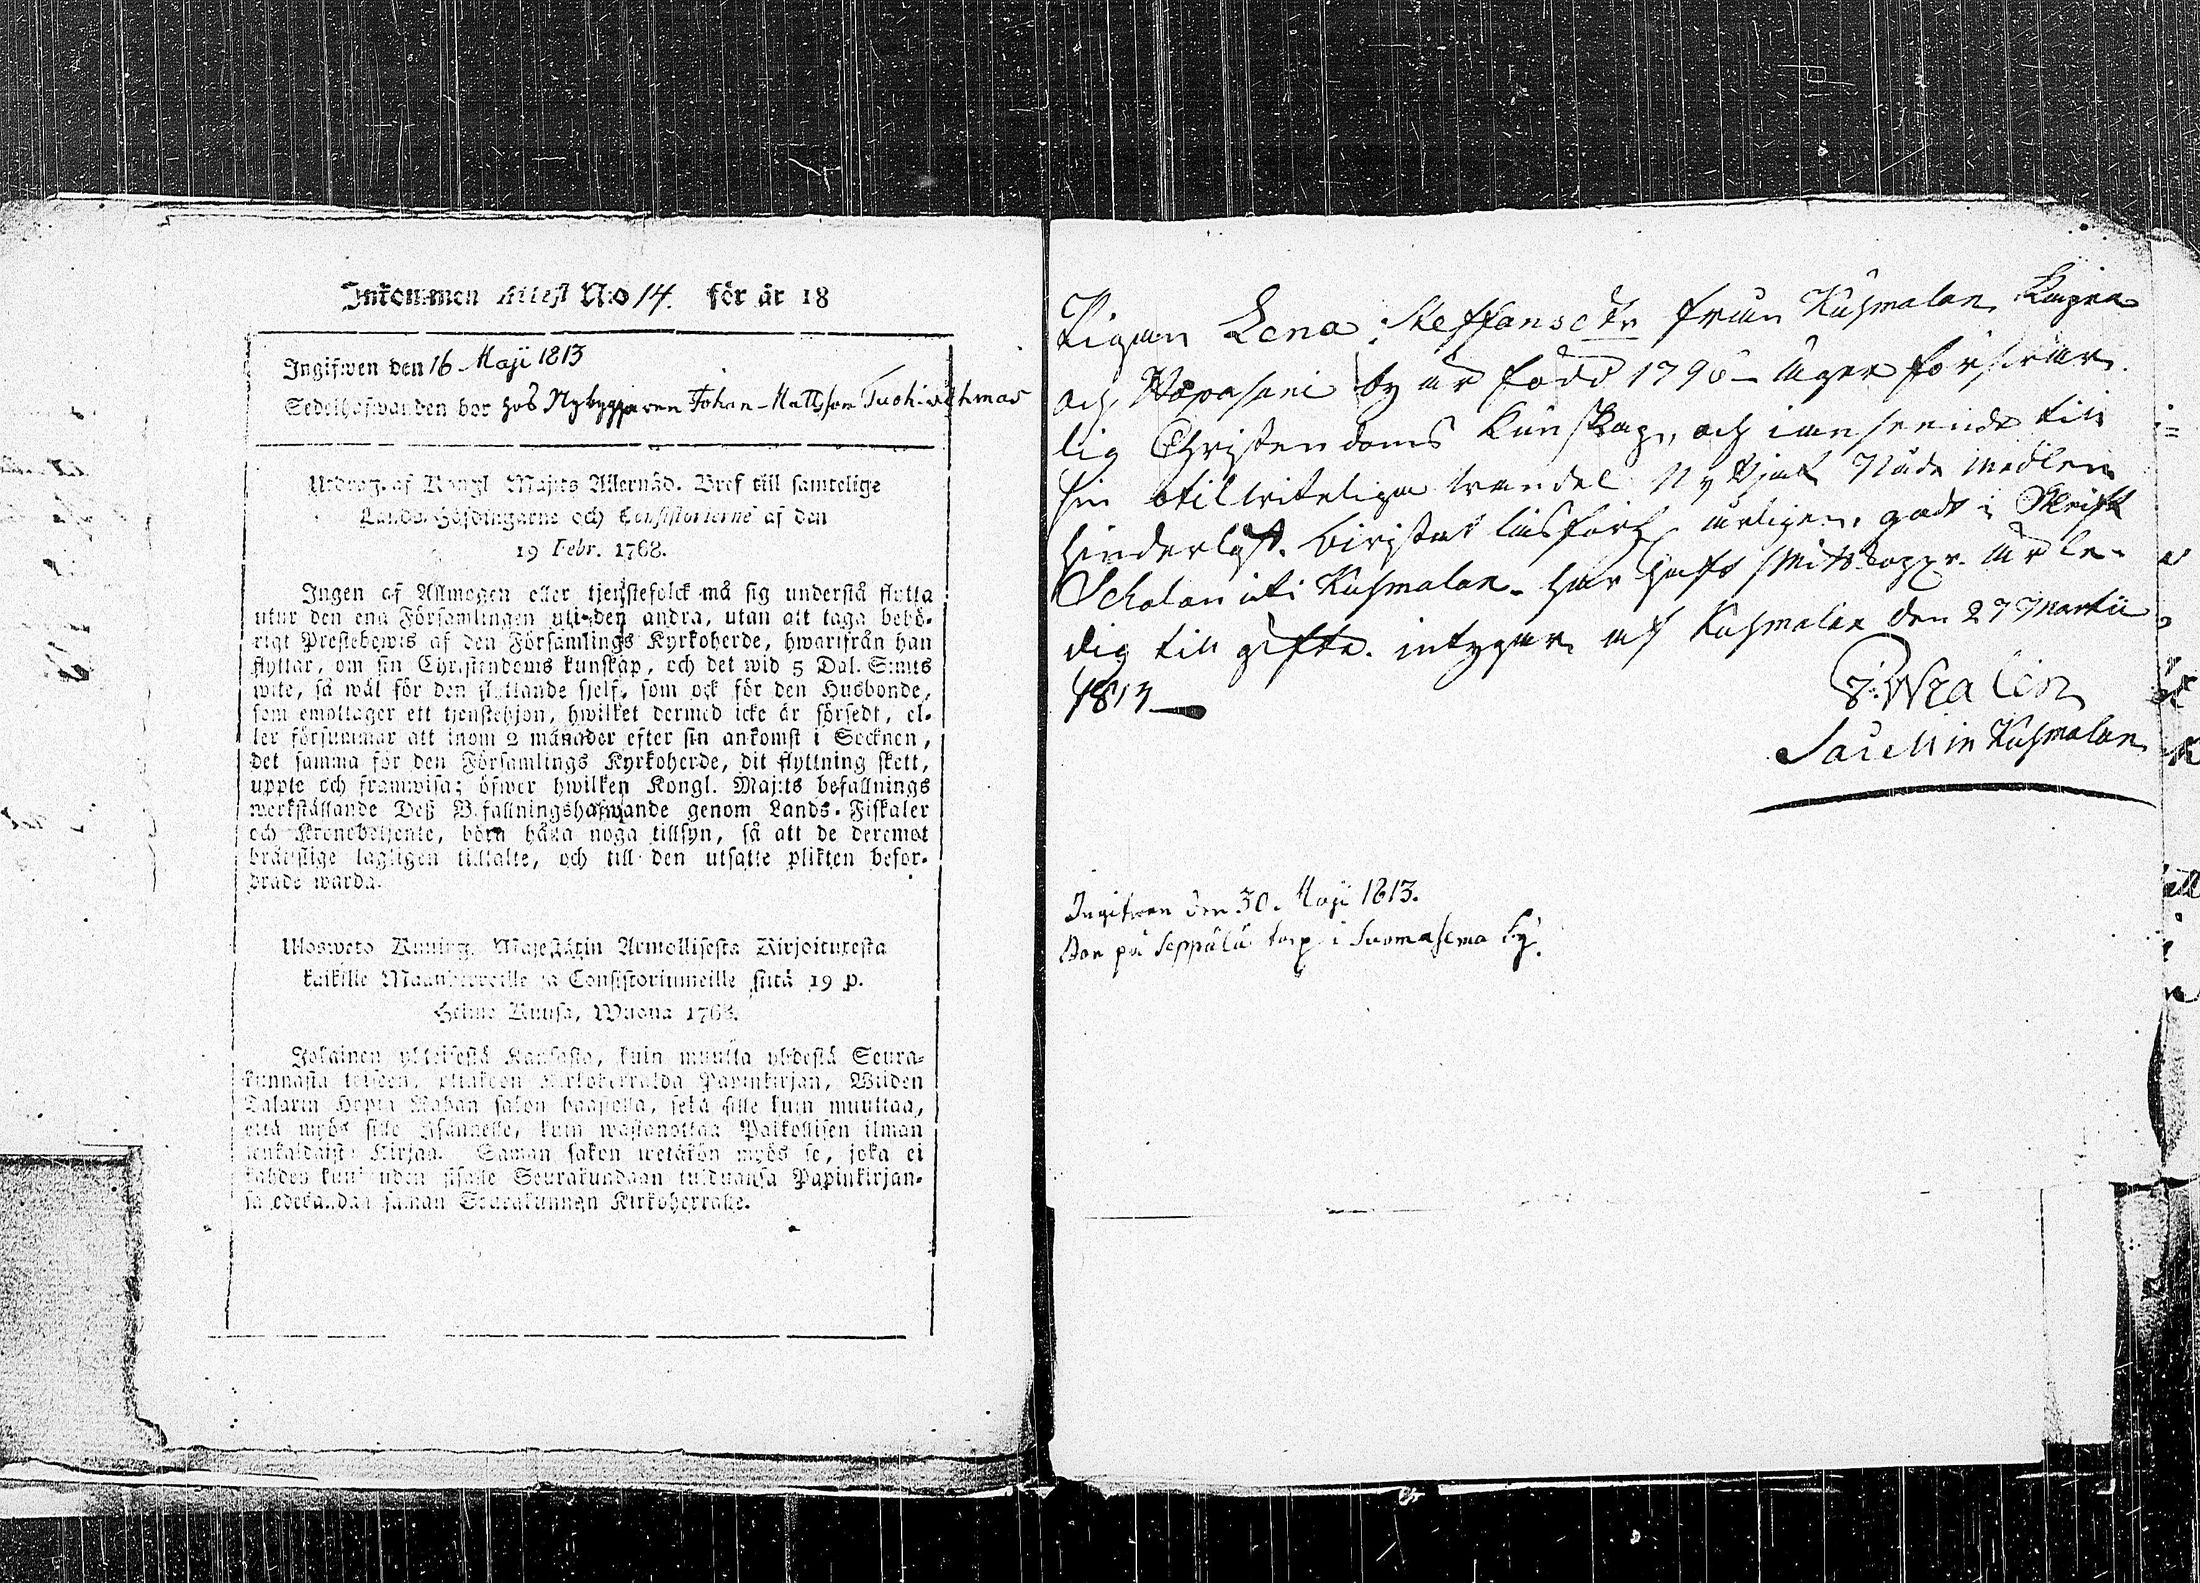 Inkommen Attest N:o 14. för år 18
Ingifwen den 16 Maji 1813
Sedelhafwanden bor hos Nybyggaren Johan Mattsson
Utdrag af Kongl. Maj:ts Allernåd. Bref till samtelige
Lands-Höfdingarne och Consistorierne af den
19 Febr. 1768.
Ingen af Allmogen eller tjenstefolck må sig understå flytta
utur den ena Församlingen uti den andra, utan att taga behö-
rigt Prestebewis af den Församlings Kyrkoherde, hwarifrån han
flyttar, om sin Christendoms kunskap, och det wid 5 Dal. S:mts
wite, så wäl för den flyttande sjelf, som ock för den Husbonde,
som emottager ett tjenstehjon, hwilket dermed icke är försedt, el-
ler försummar att inom 2 månader efter sin ankomst i Socknen,
det samma för den Församlings Kyrkoherde, dit flyttning skett,
uppte och framwisa; öfwer hwilken Kongl. Maj:ts befallnings
werkställande Deß Befallningshafwande genom Lands-Fiskaler
och Kronobetjente, böra hålla noga tillsyn, så att de deremot
bråttslige lagligen tilltalte, och till den utsatte plikten befor-
drade warda.
Ulosweto Kuning. Majestätin Armollisesta Kirjoituxesta
kaikille Maanherroille ja Consistoriumeille siitä 19 p.
Helme Kuusa, Wuona 1768.
Jokainen yhteisestä Kansasta, kuin muutta yhdestä Seura-
kunnasta toiseen, ottakoon Kirkoherralda Papinkirjan, Wiiden
Dalarin Hopia Rahan sakon haastolla, sekä sille kuin muuttaa,
että myös sille Isännelle, kuin wastanottaa Palkollisen ilman
senkaldaista Kirjaa. Saman sakon wetäkön myös se, joka ei
kahden kuukauden sisälle Seurakundaan tulduansa Papinkirjan-
sa edeskanda saman Seurakunnan Kirkoherralle.
Pigan Lena Steffansdtr från Kuhmalax
och by är född 1790 äger förswar-
lig Christendoms Kunskap, och i anseende till
sin otilwiteliga wandel Nyttjat Nåde medlen
hinderlöst. årligen, godt i Skrift
Scholan uti Kuhmalax. har haft är le-
dig till gifte. intygar af Kuhmalax den 27 Martii
1813
Wealin
in Kuhmalax
Ingifwen den 30. Maji 1813.
Bor på Seppälä torp i Suomasema by.